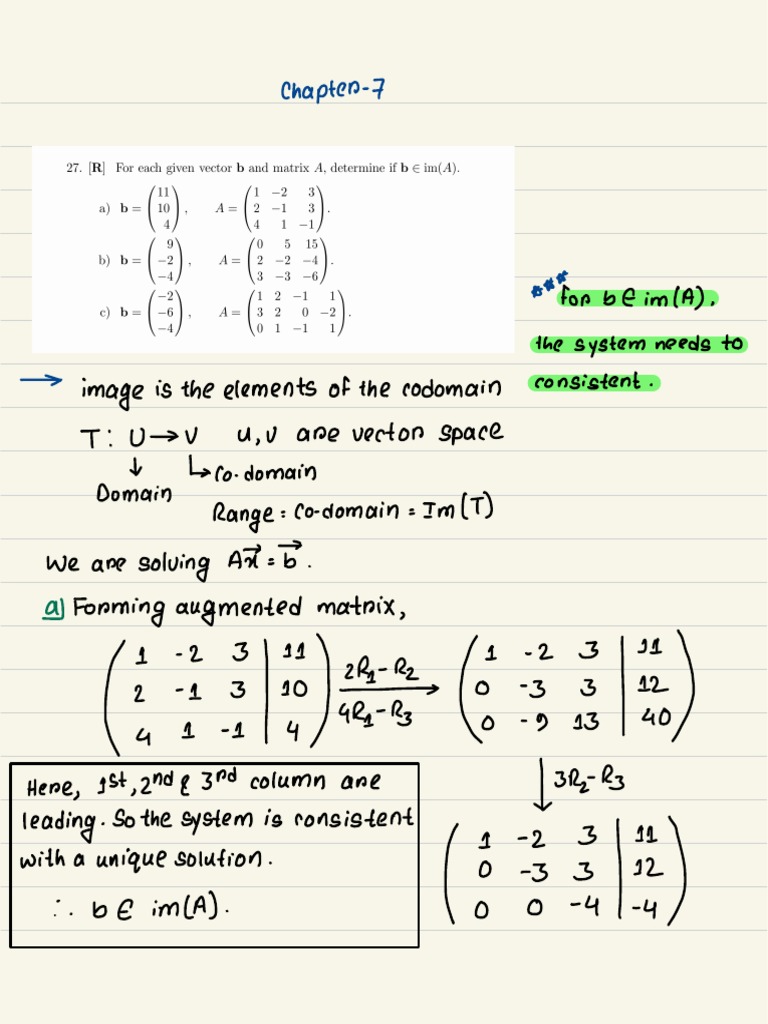 Chapter-7
27. [R] For each given vector b and matrix A, determine if b ∈ im(A).
a) b = (11 10 4), A = (1 −2 3 2 −1 3 4 1 −1).
b) b = (9 −2 −4), A = (0 5 15 2 −2 −4 3 −3 −6).
c) b = (−2 −6 −4), A = (1 2 −1 1 3 2 0 −2 0 1 −1 1).
*** for b ∈ im(A),
the system needs to
consistent.
→ image is the elements of the codomain
T: U → V u, v are vector space
↓ ↳ Co-domain
Domain
Range = Co-domain = Im(T)
We are solving Ax⃗ = b⃗.
a) Forming augmented matrix,
1 -2 3 | 11
2 -1 3 | 10
4 1 -1 | 4
2R₁ - R₂
4R₁ - R₃
1 -2 3 | 11
0 -3 3 | 12
0 -9 13 | 40
↓ 3R₂ - R₃
1 -2 3 | 11
0 -3 3 | 12
0 0 -4 | -4
Here, 1st, 2nd & 3rd column are
leading. So the system is consistent
with a unique solution.
∴ b ∈ im(A).